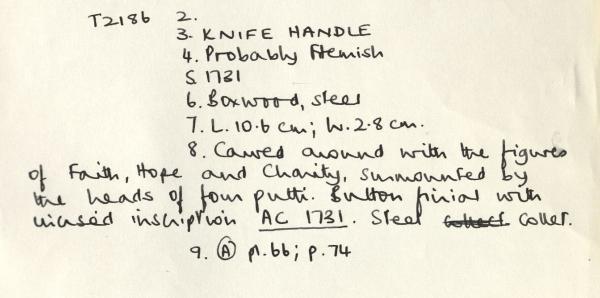 T2186 2.
3. KNIFE HANDLE
4. Probably Flemish
5 1731
6. Boxwood, steel
7. L. 10.6 cm; W. 2.8 cm.
8. Carved around with the figures
of Faith, Hope and Charity, surmounted by
the heads of four putti. Button finial with
incised inscription AC 1731. Steel collet.
9. A pl. 66; p. 74